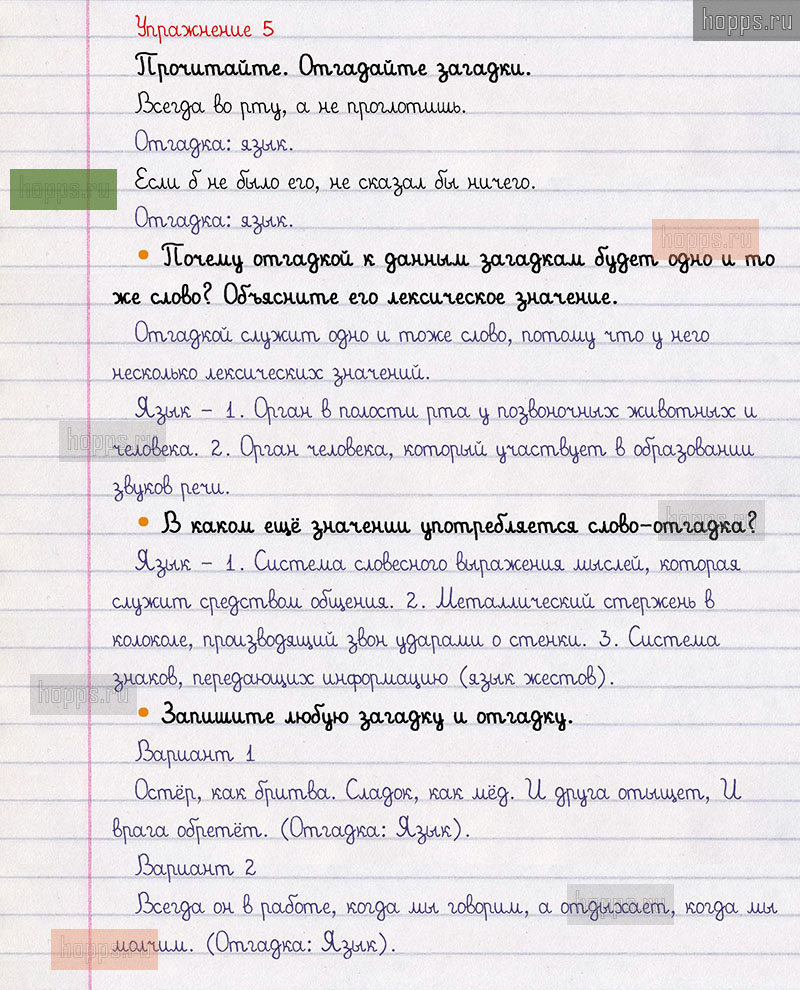 hopps.ru
Упражнение 5
Прочитайте. Отгадайте загадки.
Всегда во рту, а не проглотишь.
Отгадка: язык.
hopps.ru
Если б не было его, не сказал бы ничего.
Отгадка: язык.
hopps.ru
• Почему отгадкой к данным загадкам будет одно и то
же слово? Объясните его лексическое значение.
Отгадкой служит одно и тоже слово, потому что у него
несколько лексических значений.
Язык – 1. Орган в полости рта у позвоночных животных и
hopps.ru
человека. 2. Орган человека, который участвует в образовании
звуков речи.
hopps.ru
• В каком ещё значении употребляется слово-отгадка?
Язык – 1. Система словесного выражения мыслей, которая
служит средством общения. 2. Металлический стержень в
колоколе, производящий звон ударами о стенки. 3. Система
знаков, передающих информацию (язык жестов).
hopps.ru
• Запишите любую загадку и отгадку.
Вариант 1
Остёр, как бритва. Сладок, как мёд. И друга отыщет, И
врага обретёт. (Отгадка: Язык).
Вариант 2
hopps.ru
Всегда он в работе, когда мы говорим, а отдыхает, когда мы
hopps.ru
молчим. (Отгадка: Язык).